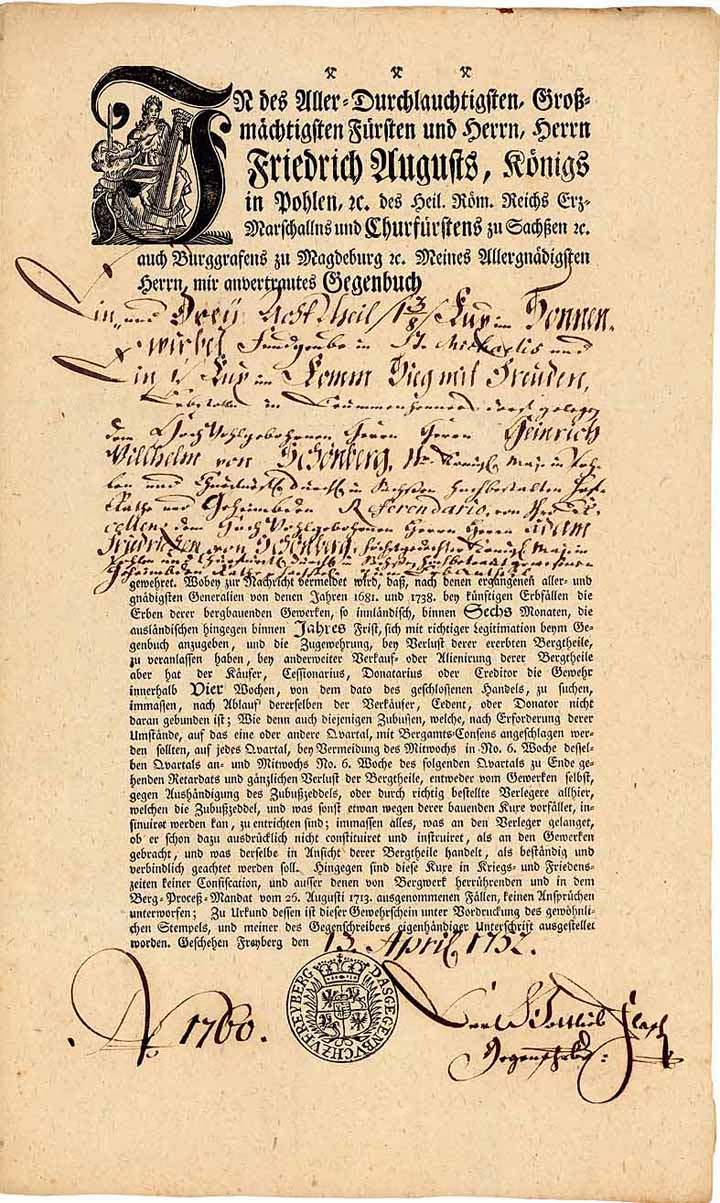 IN des Aller-Durchlauchtigsten, Groß-
mächtigsten Fürsten und Herrn, Herrn
Friedrich Augusts, Königs
in Pohlen, ꝛc. des Heil. Röm. Reichs Erz-
Marschallns und Churfürstens zu Sachßen ꝛc.
auch Burggrafens zu Magdeburg ꝛc. Meines Allergnädigsten
Herrn, mir anvertrautes Gegenbuch
Ein und Drey Acht Theil /1 3/8/ Kux im Donnen-
wirbel Fundgrube in St. Michaelis und
Ein Kux im Komm Sieg mit Freuden,
Erbstolln in
dem Hoch Wohlgebohrnen Herrn Herrn Heinrich
Wilhelm von Schönberg, Königl. Maj. in Poh-
len und Churfürstl. Durchl. zu Sachßen hochbestalten Hof-
Rathe und Geheimbden Referendario, von
dem Hoch Wohlgebohrnen Herrn Herrn Adam
Friedrichen von Schönberg, Königl. Maj. in
Pohlen und Churfürstl. Durchl. zu Sachßen
gewehret. Wobey zur Nachricht vermeldet wird, daß, nach denen ergangenen aller- und
gnädigsten Generalien von denen Jahren 1681. und 1738. bey künftigen Erbfällen die
Erben derer bergbauenden Gewerken, so innländisch, binnen Sechs Monaten, die
ausländischen hingegen binnen Jahres Frist, sich mit richtiger Legitimation beym Ge-
genbuch anzugeben, und die Zugewehrung, bey Verlust derer ererbten Bergtheile,
zu veranlassen haben, bey anderweiter Verkauf- oder Alienirung derer Bergtheile
aber hat der Käufer, Cessionarius, Donatarius oder Creditor die Gewehr
innerhalb Vier Wochen, von dem dato des geschloßenen Handels, zu suchen,
immassen, nach Ablauf dererselben der Verkäufer, Cedent, oder Donator nicht
daran gebunden ist; Wie denn auch diejenigen Zubusen, welche, nach Erforderung derer
Umstände, auf das eine oder andere Qvartal, mit Bergamts-Consens angeschlagen wer-
den sollten, auf jedes Qvartal, bey Vermeidung des Mitwochs in No. 6. Woche dessel-
ben Qvartals an- und Mitwochs No. 6. Woche des folgenden Qvartals zu Ende ge-
henden Retardats und gänzlichen Verlust der Bergtheile, entweder vom Gewerken selbst,
gegen Aushändigung des Zubußzeddels, oder durch richtig bestellte Verlegere allhier,
welchen die Zubußzeddel, und was sonst etwan wegen derer bauenden Kuxe vorfället, in-
sinuiret werden kan, zu entrichten sind; immassen alles, was an den Verleger gelanget,
ob er schon dazu ausdrücklich nicht constituiret und instruiret, als an den Gewerken
gebracht, und was derselbe in Ansicht derer Bergtheile handelt, als beständig und
verbindlich geachtet werden soll. Hingegen sind diese Kuxe in Kriegs- und Friedens-
zeiten keiner Confiscation, und ausser denen von Bergwerk herrührenden und in dem
Berg-Proceß-Mandat vom 26. Augusti 1713. ausgenommenen Fällen, keinen Ansprüchen
unterworfen; Zu Urkund dessen ist dieser Gewehrschein unter Vordruckung des gewöhnli-
chen Stempels, und meiner des Gegenschreibers eigenhändiger Unterschrift ausgestellet
worden. Geschehen Freyberg den 13. April, 1752.
DAS GEGENBVCH ZV FREYBERG
No. 1760.
Carl Gottlieb
Gegenschreiber